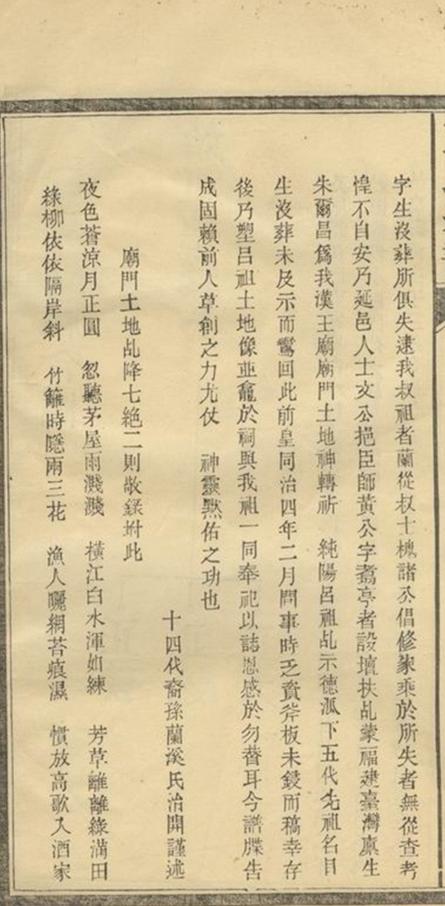 字生沒葬所俱失逮我叔祖者蘭從叔士槐諸公倡修家乘於所失者無從查考
惶不自安乃延邑人士文公挹臣師黃公字翥亭者設壇扶乩蒙福建臺灣廪生
朱爾昌爲我漢王廟廟門土地神轉祈　純陽呂祖乩示德派下五代先祖名目
生沒葬未及示而鸞回此前皇同治四年二月間事時乏資斧板未鋟而稿幸存
後乃塑呂祖土地像並龕於祠與我祖一同奉祀以誌恩感於勿替耳今譜牒告
成固賴前人草創之力尤仗　神靈默佑之功也
十四代裔孫蘭溪氏治開謹述
廟門土地乩降七絕二則敬錄坿此
夜色蒼涼月正圓　忽聽茅屋雨濺濺　橫江白水渾如練　芳草離離綠滿田
綠柳依依隔岸斜　竹籬時隱兩三花　漁人曬網苔痕濕　慣放高歌入酒家